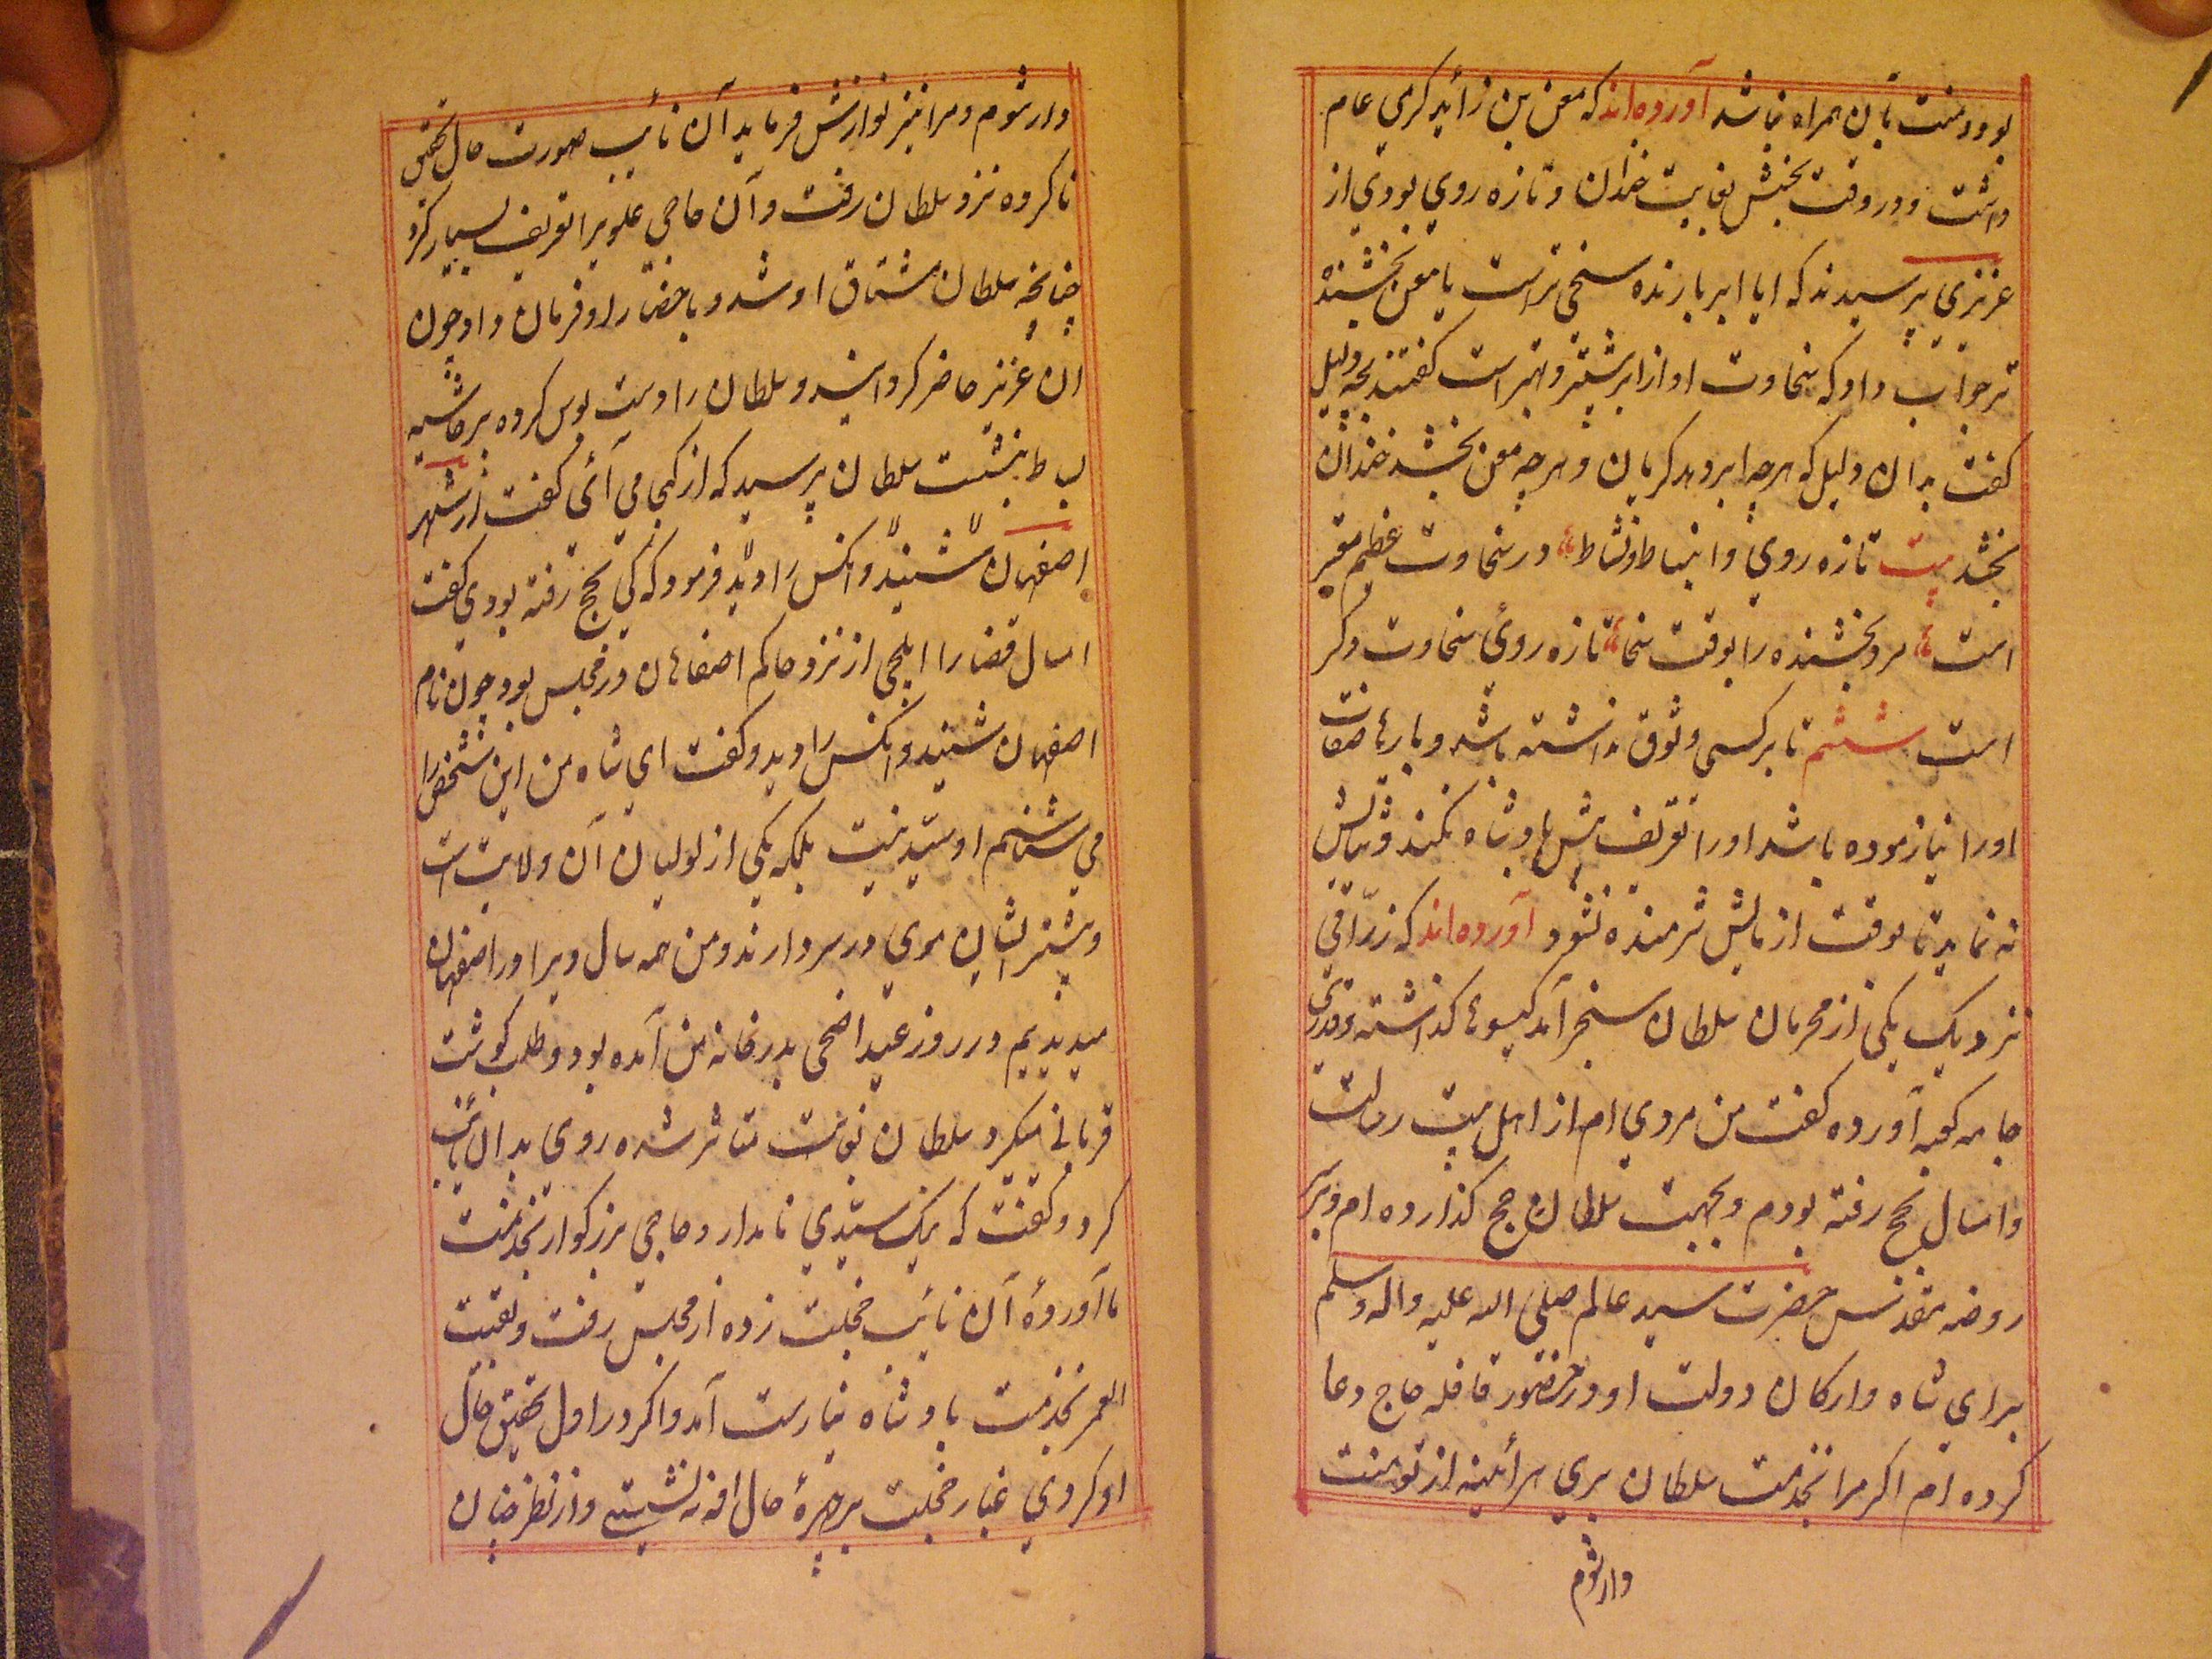 بود و منت بآن همراه نباشد آورده‌اند که معن بن زائده کرمی عام
داشت و در وقت بخشش بغایت خندان و تازه روی بودی از
عزیزی پرسیدند که ایا ابر بارنده سخی تر است یا معن بخشنده
تر جواب داد که سخاوت او از ابر بیشتر و بهتر است کفتند بچه دلیل
کفت بدان دلیل که هرچه ابر دهد کریان و هرچه معن بخشد خندان
بخشد بیت تازه روی و انبساط و نشاط در سخاوت عظیم معتبر
است مرد بخشنده را بوقت سخا تازه روئی سخاوت دکر
است ششم تا بر کسی وثوق نداشته باشد و بارها صفات
اورا نیازموده باشد اورا تعریف پیش پادشاه نکند و ستایش
نه نماید تا بوقت ازمایش شرمنده نشود آورده‌اند که زراقی
نزدیک یکی از محرمان سلطان سنجر آمد کیسوها کذاشته و قدری
جامه کعبه آورده کفت من مردی ام از اهل بیت رسالت
و امسال بحج رفته بودم و بجهت سلطان حج کذارده ام و بر سر
روضه مقدس حضرت سید عالم صلی الله علیه واله وسلم
برای شاه و ارکان دولت او در حضور قافله حاج دعا
کرده ام اکر مرا بخدمت سلطان بری هرآئینه از تو منت
دار شوم
دار شوم و مرا نیز نوازش فرماید آن نائب صورت حال تحقیق
ناکرده نزد سلطان رفت و آن حاجی علوی را تعریف بسیار کرد
چنانچه سلطان مشتاق او شد و باحضار او فرمان داد چون
ان عزیز حاضر کردانید و سلطان را دست بوس کرده بر حاشیه
بساط بنشست سلطان پرسید که از کجا می آئی کفت از شهر
اصفهان شنید و انکس را دید فرمود که کی بحج رفته بودی کفت
امسال قضا را ایلچی از نزد حاکم اصفاهان در مجلس بود چون نام
اصفهان شنید و انکس را دید و کفت ای شاه من این شخص را
می شناسم او سید نیست بلکه یکی از لولیان آن ولایت است
و بیشتر ایشان موی در سر دارند و من همه سال ویرا در اصفهان
میدیدیم در روز عید اضحی بدر خانه من آمده بود و طلب کوشت
قربانی میکرد سلطان بغایت متاثر شده روی بدان نائب
کرد و کفت که نیک سیدی نامدار و حاجی بزرکوار بخدمت
ما آورده آن نائب خجلت زده از مجلس رفت و بقیت
العمر بخدمت پادشاه نیارست آمد و اکر در اول تحقیق حال
او کردی غبار خجلت بر چهرهٔ حال او نه نشستی و از نظر چنان